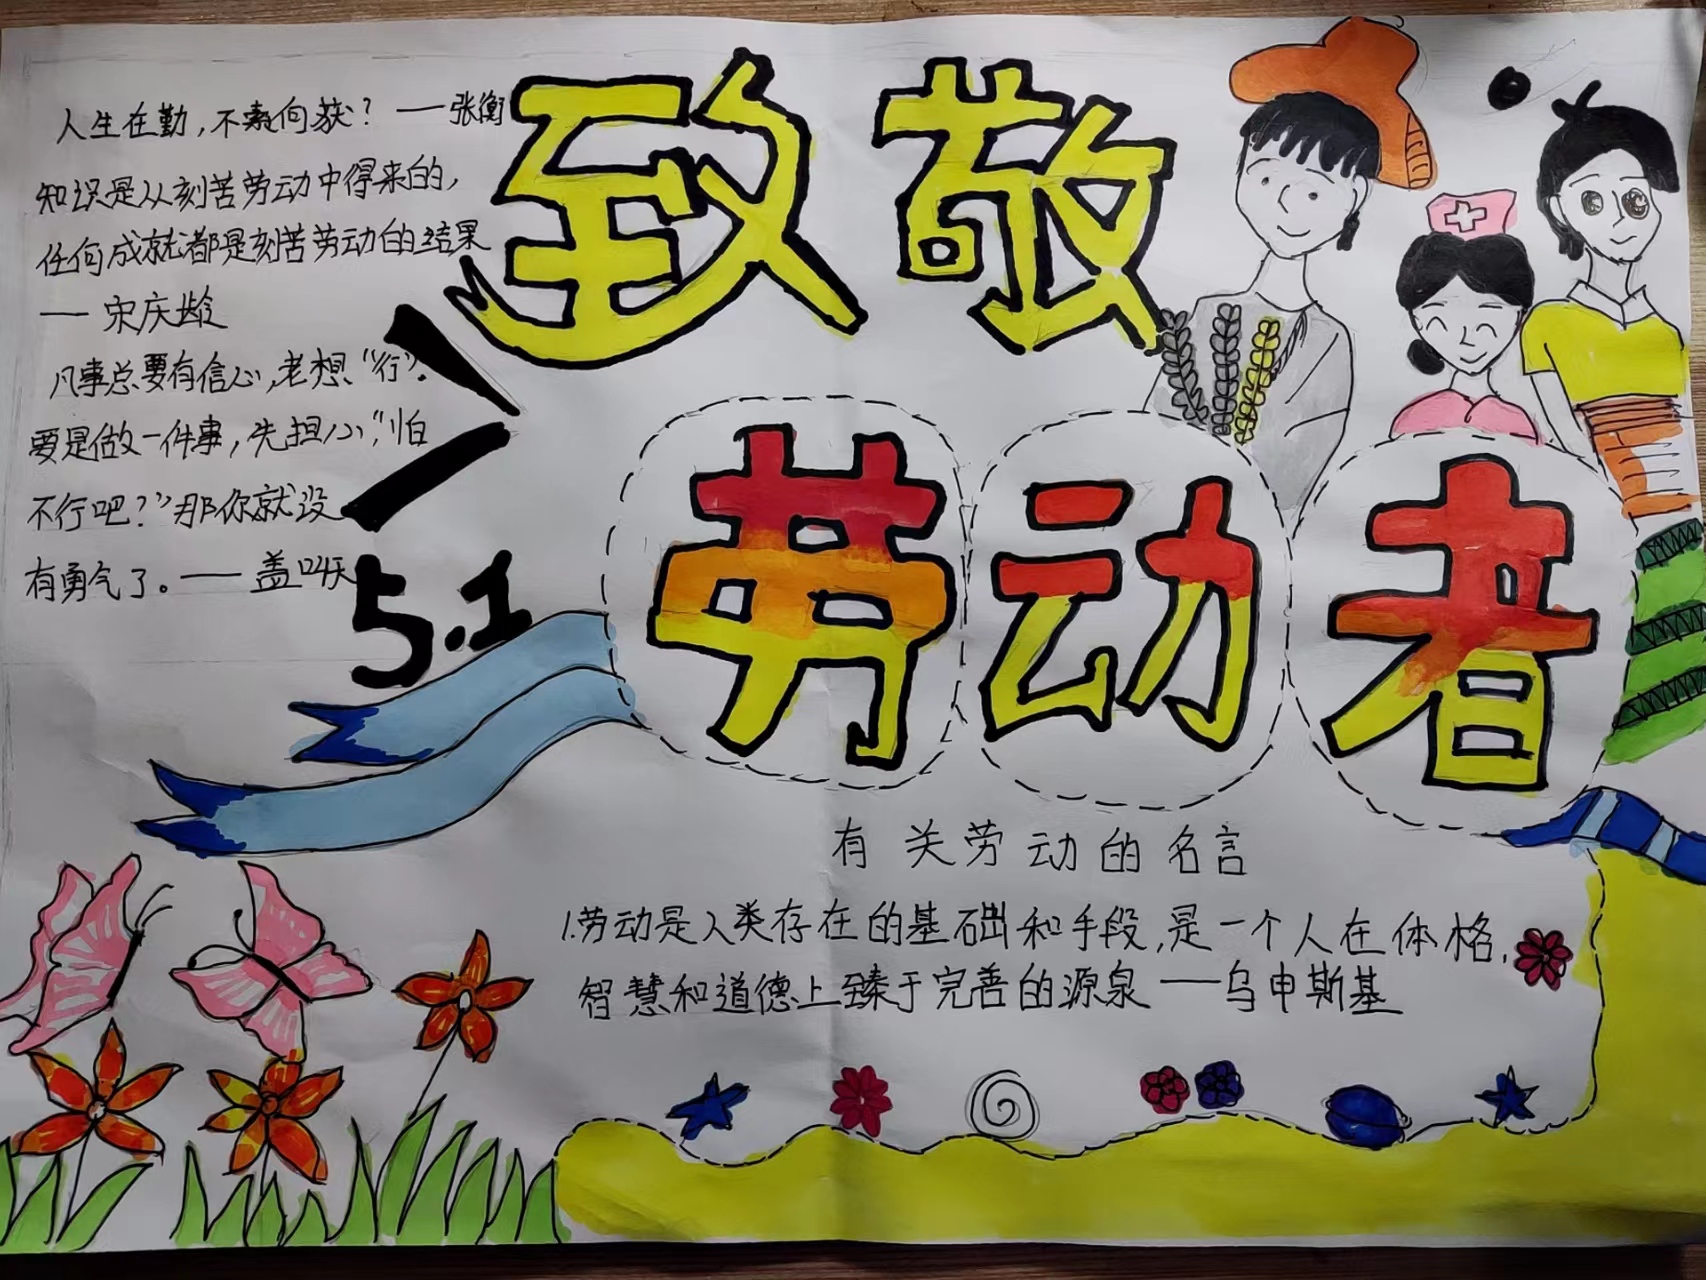 致敬
劳动者
人生在勤,不索何获?——张衡
知识是从刻苦劳动中得来的,
任何成就都是刻苦劳动的结果
——宋庆龄
凡事总要有信心,老想“行”。
要是做一件事,先担心,“怕
不行吧?”那你就没
有勇气了。——盖叫天
5.1
有关劳动的名言
1.劳动是人类存在的基础和手段,是一个人在体格,
智慧和道德上臻于完善的源泉——乌申斯基